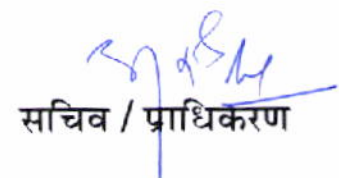 सचिव / प्राधिकरण